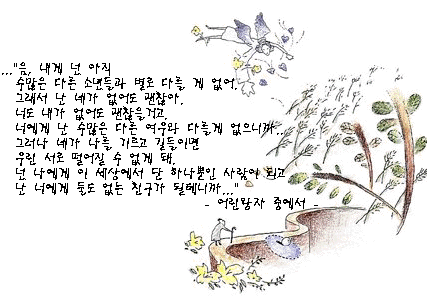 ..."음, 내게 넌 아직
수많은 다른 소년들과 별로 다를 게 없어.
그래서 난 네가 없어도 괜찮아.
너도 내가 없어도 괜찮을거고.
너에게 난 수많은 다른 여우와 다를게 없으니까..
그러나 네가 나를 기르고 길들이면
우린 서로 떨어질 수 없게 돼.
넌 나에게 이 세상에서 단 하나뿐인 사람이 되고
난 너에게 둘도 없는 친구가 될테니까..."
- 어린왕자 중에서 -